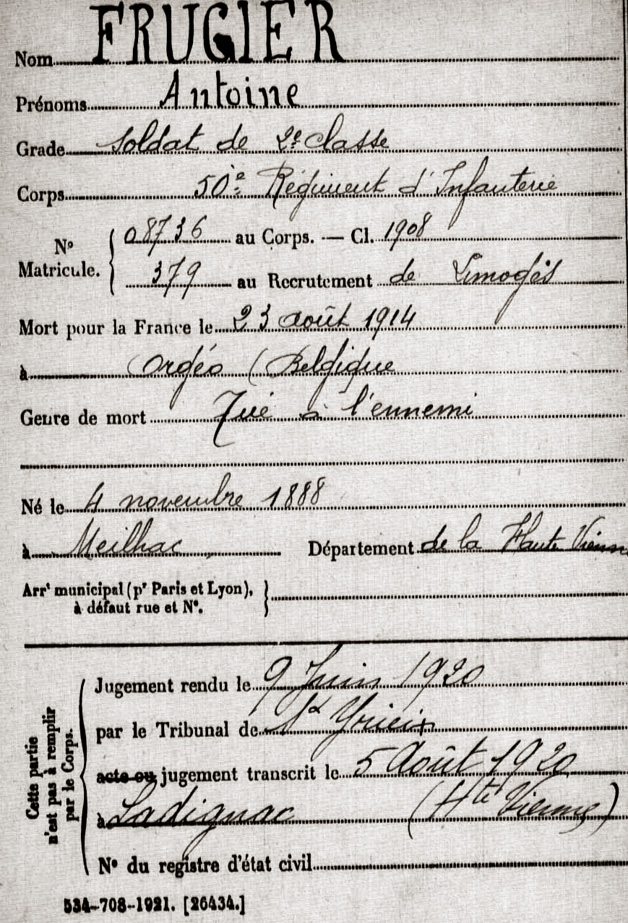 Nom FRUGIER
Prénoms Antoine
Grade Soldat de 2e classe
Corps 50e Régiment d'Infanterie
No Matricule. { 08736 au Corps. — Cl. 1908
379 au Recrutement de Limoges
Mort pour la France le 23 août 1914
à Orgéo (Belgique
Genre de mort Tué à l'ennemi
Né le 4 novembre 1888
à Meilhac Département de la Haute Vienne
Arrt municipal (pr Paris et Lyon), }
à défaut rue et No.
Cette partie
n'est pas à remplir
par le Corps.
Jugement rendu le 9 Juin 1920
par le Tribunal de St Yrieix
acte ou jugement transcrit le 5 Août 1920
à Ladignac (Hte Vienne)
No du registre d'état civil
534-708-1921. [26434.]